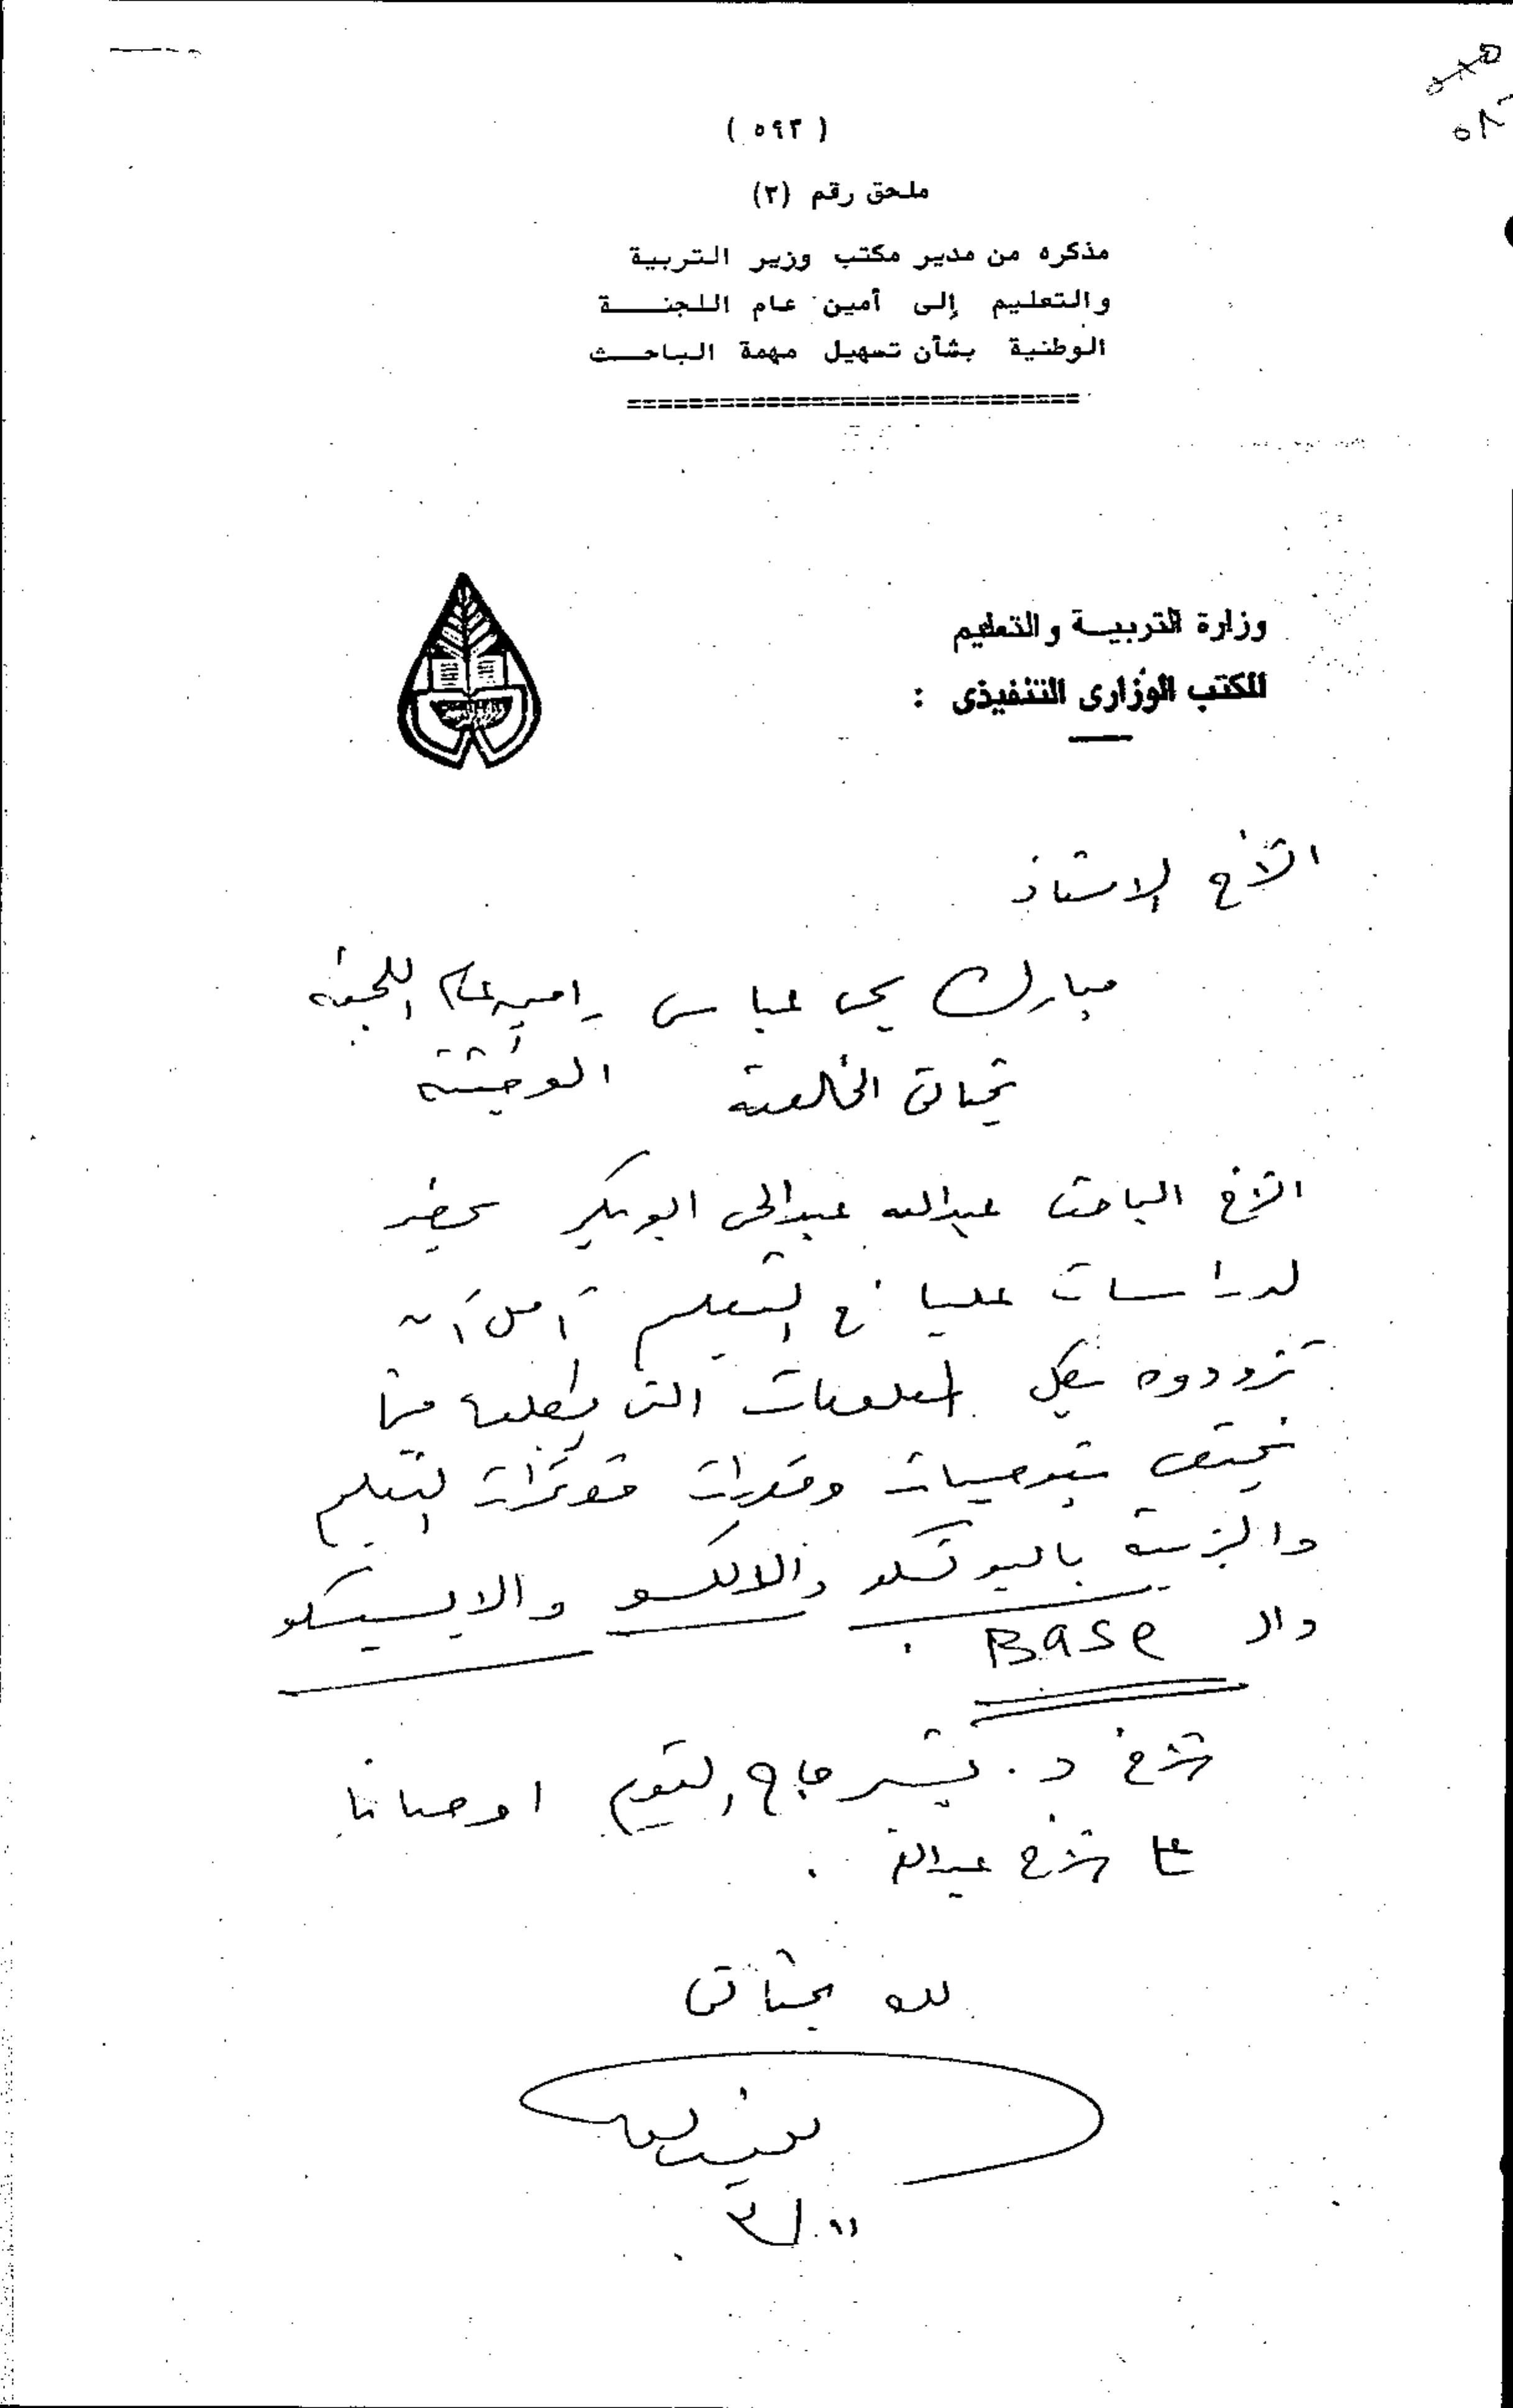 ( ٥٩٣ )
ملحق رقم (٢)
مذكره من مدير مكتب وزير التربية
والتعليم إلى أمين عام اللجنة
الوطنية بشأن تسهيل مهمة الباحث
وزارة التربية والتعليم
المكتب الوزارى التنفيذى :
الأخ الاستاذ
مبارك يحى عباس امين عام اللجنة
الوطنية
تحياتى الخالصة
الأخ الباحث عبدالله عبدالحى ابوبكر يحضر
لدراسات عليا فى التعليم آمل أن
تزودوه بكل المعلومات التى يطلبها فيما
يختص بتوصيات وقرارات مؤتمرات التعليم
والتربية باليونسكو والالكسو والايسيسكو
والـ Base .
الأخ د. بشير حاج التوم اوصانا
على الأخ عبدالله .
لك تحياتى